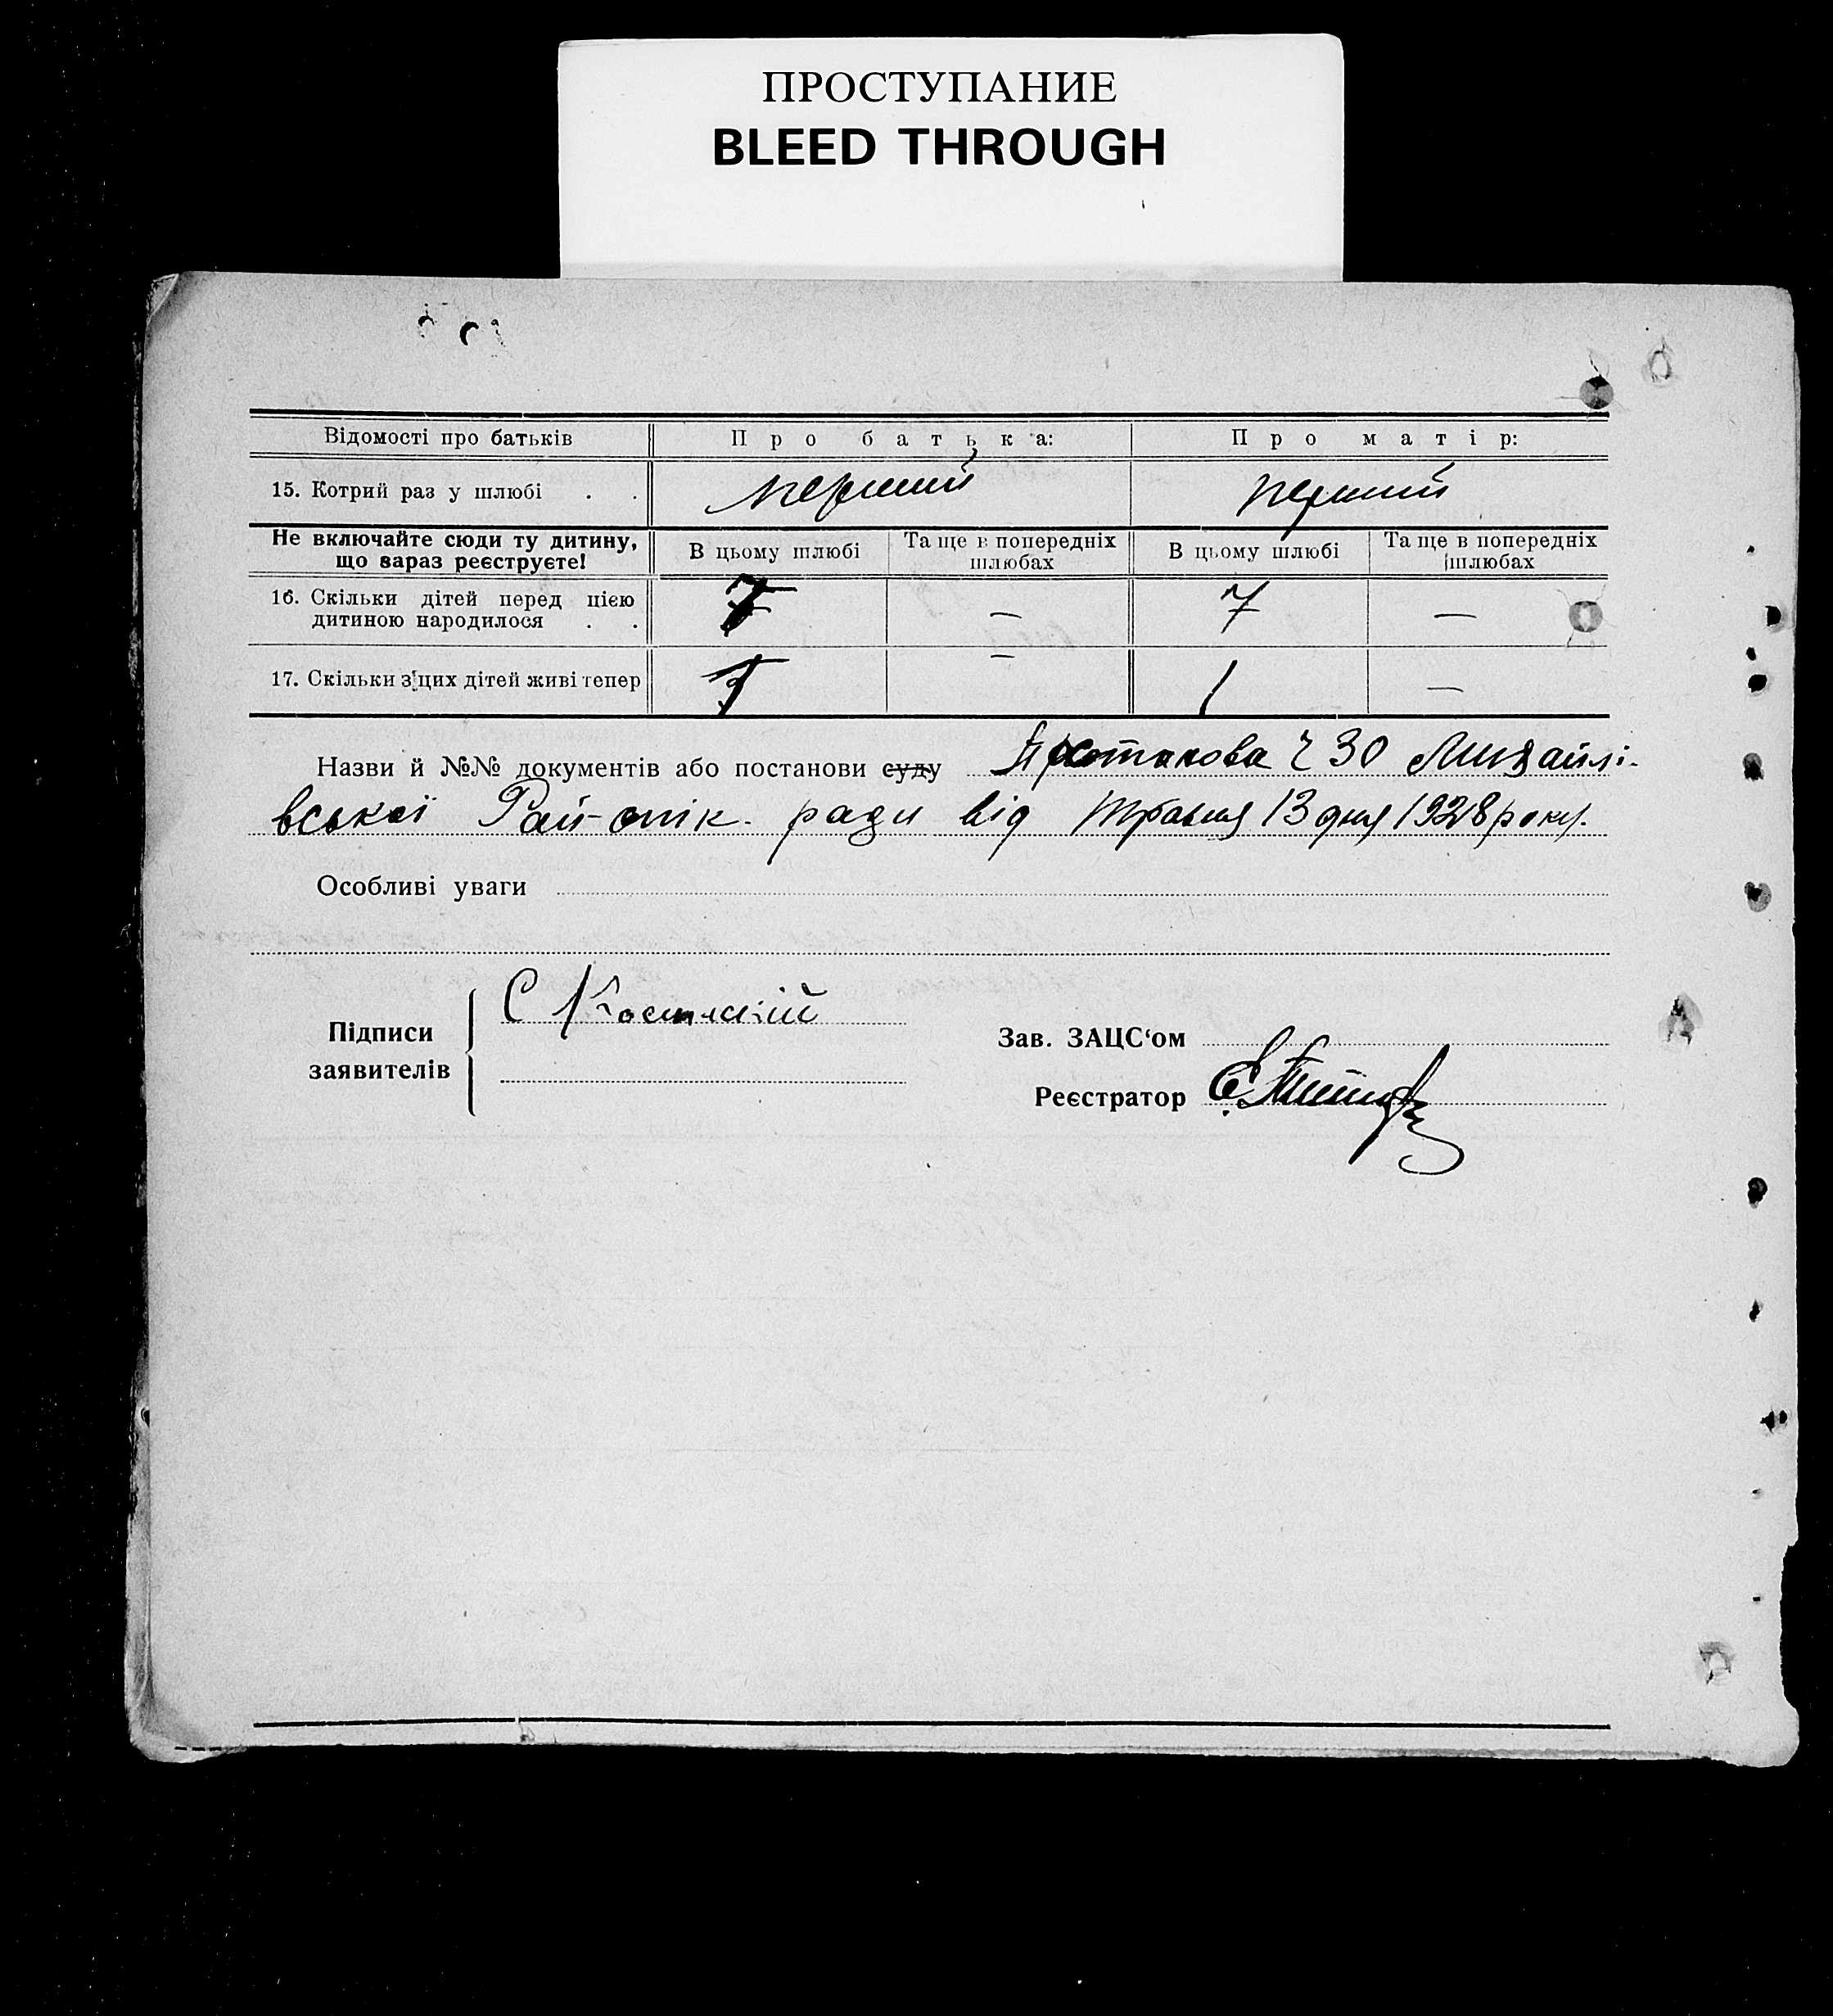 ПРОСТУПАНИЕ
BLEED THROUGH
Відомості про батьків Про батька: Про матір:
15. Котрий раз у шлюбі . . перший перший
Не включайте сюди ту дитину, що вараз реєструєте! В цьому шлюбі Та ще в попередніх шлюбах В цьому шлюбі Та ще в попередніх шлюбах
16. Скільки дітей перед цією дитиною народилося . . 7 — 7 —
17. Скільки з цих дітей живі тепер — 1 —
Назви й №№ документів або постанови суду Ч 30 Михайлі-
вської Рай-опік. ради від Травня 13 дня 1928 року.
Особливі уваги
Підписи заявителів
С
Зав. ЗАЦС‘ом
Реєстратор